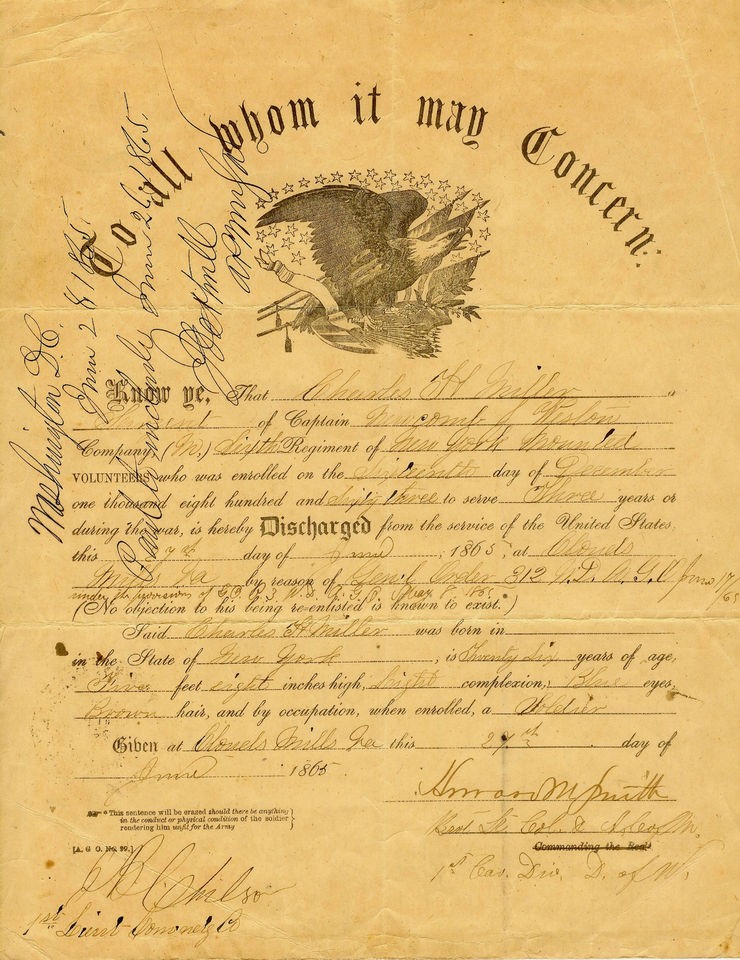 To all whom it may Concern:
Know ye, That Charles H Miller a
of Captain Newcomb
Company, (M,) Sixth Regiment of New York Mounted
VOLUNTEERS who was enrolled on the Sixteenth day of December
one thousand eight hundred and Sixty three to serve Three years or
during the war, is hereby Discharged from the service of the United States,
this day of June, 1865, at Clouds
Mills Va by reason of Genl Order 312 A.G.O June 17/65
under the provisions of G.O. W.D. A.G.O. May 8. 1865
(No objection to his being re-enlisted is known to exist.*)
Said Charles H Miller was born in
in the State of New York, is Twenty Six years of age,
Five feet eight inches high, Light complexion, Blue eyes,
Brown hair, and by occupation, when enrolled, a Soldier
Given at Clouds Mills Va this 27th day of
June 1865.
Howard M Smith
Bvt Lt Col &
Commanding the Reg't
1st Cav. Div. D. of W.
* This sentence will be erased should there be anything
in the conduct or physical condition of the soldier
rendering him unfit for the Army
[A. G O. No. 99.]
1st Lieut Comndg Co
Washington D.C.
June 28 1865.
Paid in full June 28 1865.